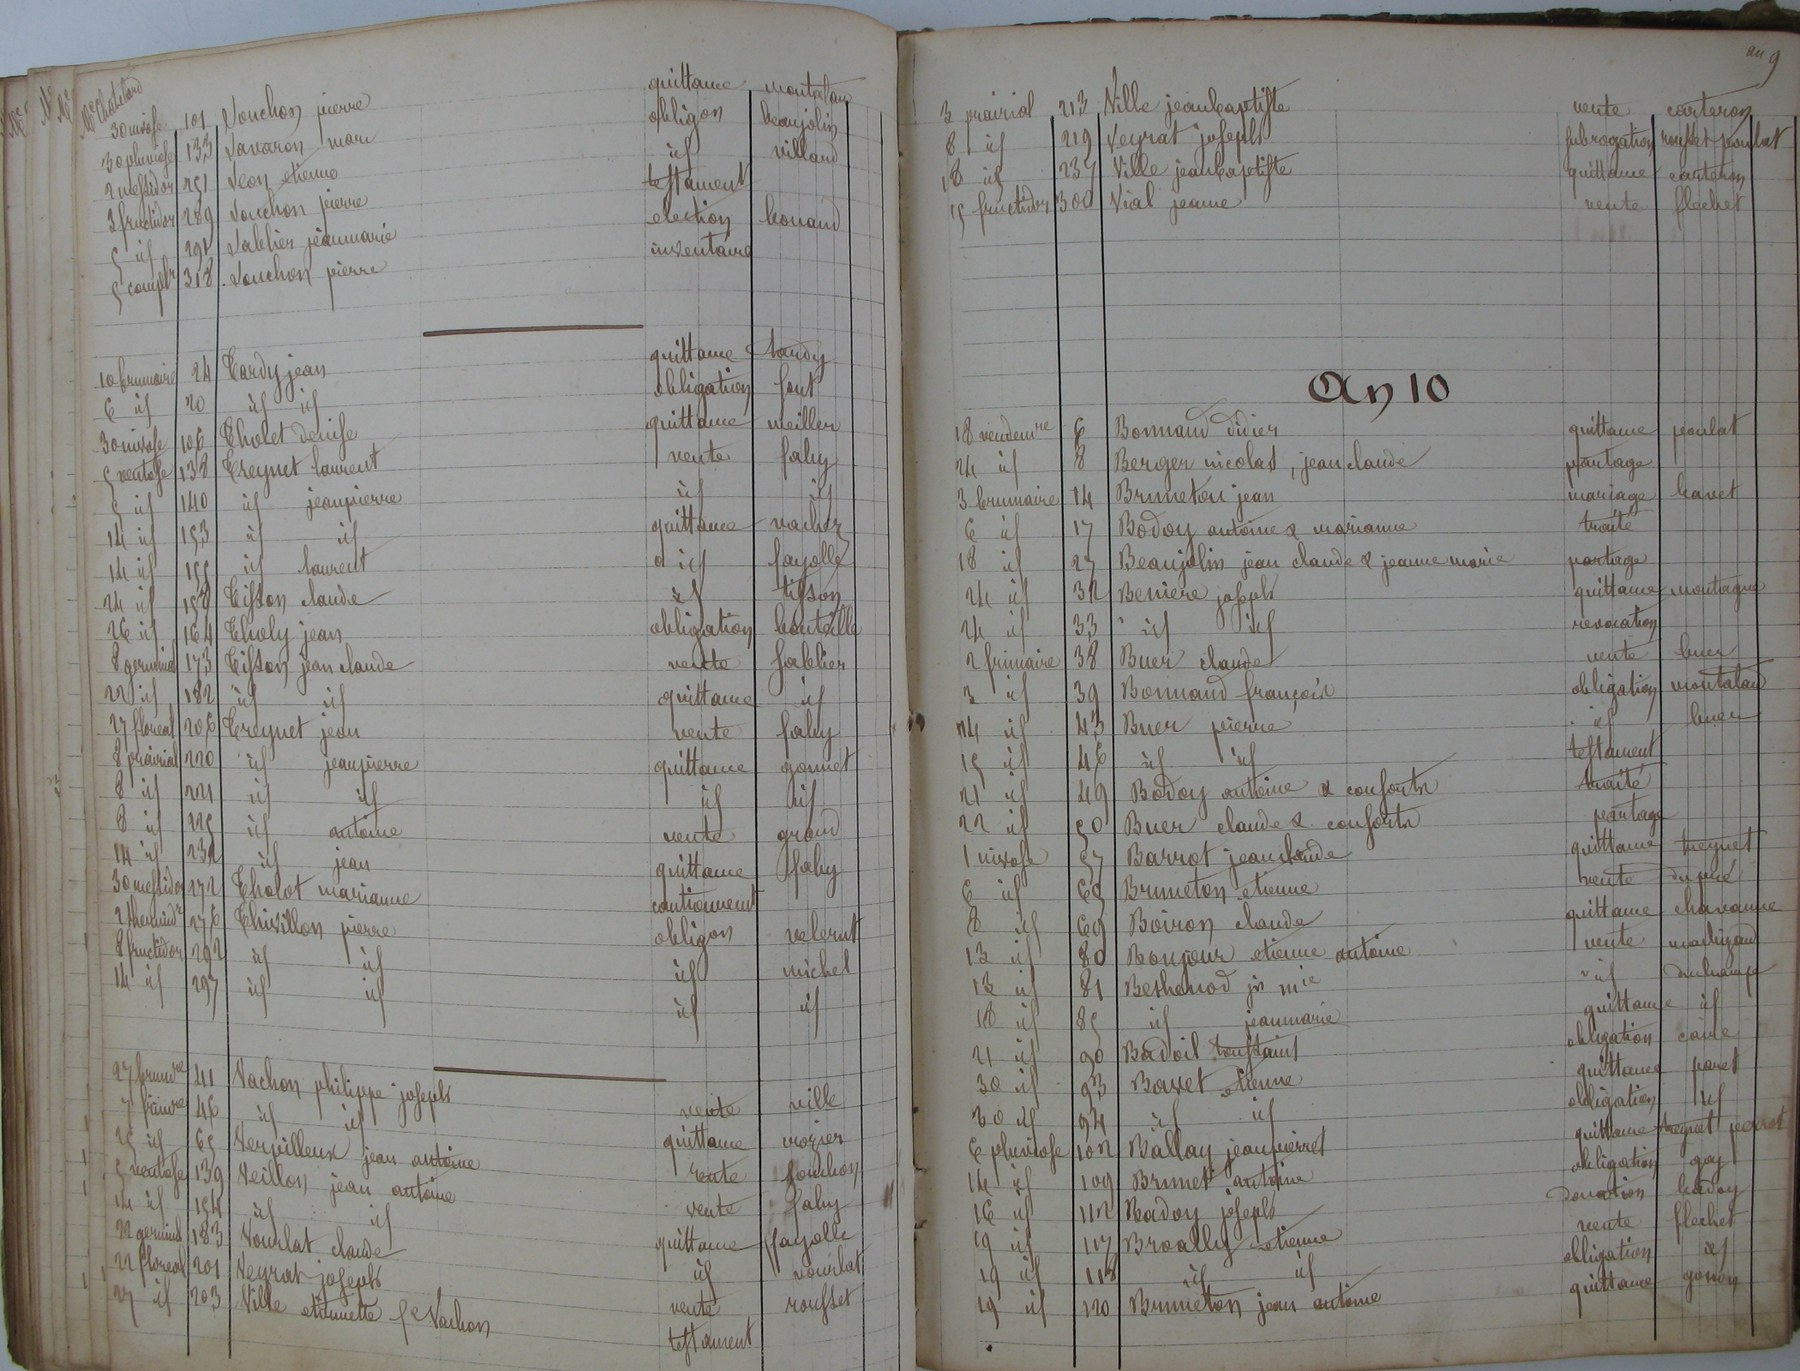 Me Chatelard
30 nivose 101 Souchon pierre quittance montaland
30 pluviose 133 Savaron marc obligon beaujolin
2 messidor 251 Seon etienne id villard
3 fructidor 289 Souchon pierre testament
5 id 291 Sablier jeanmarie election honand
5 complre 318 Souchon pierre inventaire
10 brumaire 24 Tardy jean quittance tardy
6 id 20 id id obligation font
30 nivose 106 Tholet denise quittance meiller
5 ventose 138 Treynet laurent vente fahy
5 id 140 id jeanpierre id id
14 id 153 id id quittance vacher
14 id 155 id laurent id fayolle
24 id 158 Tisson claude id tisson
26 id 164 Tholy jean obligation bouteille
8 germinal 173 Tisson jean claude vente sablier
22 id 182 id id quittance id
27 floreal 206 Treynet jean vente fahy
8 prairial 220 id jeanpierre quittance gonnet
8 id 221 id id id id
8 id 225 id antoine vente grand
14 id 232 id jean quittance fahy
30 messidor 272 Tholot marianne cautionnement
2 thermidr 276 Thivillon pierre obligon velerut
8 fructidor 292 id id id michel
14 id 297 id id id id
27 brumre 41 Vachon philippe joseph vente ville
7 frimre 46 id id quittance rozier
25 id 65 Verpilleux jean antoine vente souchon
5 ventose 139 Veillon jean antoine vente fahy
14 id 154 id id quittance fayolle
22 germinal 183 Vourlat claude id vourlat
22 floreal 201 Veyrat joseph vente rousset
27 id 203 Ville etiennette fe Vachon testament
an 9
3 prairial 213 Ville jeanbaptiste vente carteron
8 id 219 Veyrat joseph subrogation rousset poulat
18 id 237 Ville jeanbaptiste quittance carteron
15 fructidor 300 Vial jeanne vente flechet
An 10
18 vendemre 6 Bonnand didier quittance poulat
24 id 8 Berger nicolas, jean claude partage
3 brumaire 14 Bruneton jean mariage havet
6 id 17 Bodoy antoine & marianne traité
18 id 27 Beaujolin jean claude & jeanne marie partage
24 id 32 Beniere joseph quittance montagne
24 id 33 id id revocation
2 frimaire 38 Buer claude vente buer
3 id 39 Bonnand françois obligation montaland
14 id 43 Buer pierre id buer
15 id 46 id id testament
21 id 49 Bodoy antoine & consorts traité
22 id 50 Buer claude & consorts partage
1 nivose 57 Barrot jean claude quittance treynet
6 id 65 Bruneton etienne vente dupré
8 id 69 Boiron claude quittance chavanne
13 id 80 Bonjour etienne antoine vente machizaud
13 id 81 Bethenod jn mie id duchamp
18 id 85 id jeanmarie quittance id
21 id 90 Badoil toussaint obligation caire
30 id 93 Bavet etienne quittance paret
30 id 94 id id obligation id
6 pluviose 102 Ballay jeanpierre quittance treynet peorot
14 id 109 Brunet antoine obligation gay
16 id 112 Badoy joseph donation badoy
19 id 117 Broally etienne vente flechet
19 id 118 id id obligation id
19 id 120 Bruneton jean antoine quittance gonon